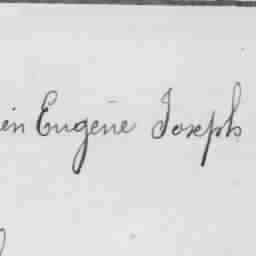 ien Eugène Joseph